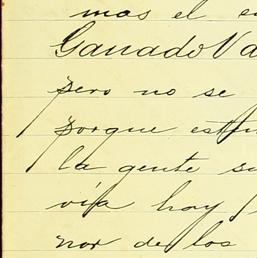 mos el e
Ganado Va
pero no se
porque estu
la gente su
vía hay
nor de los